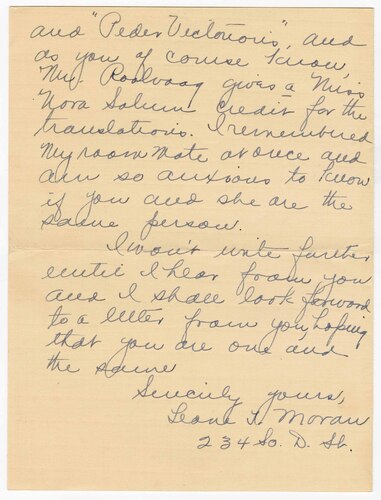 and "Peder Victorious", and
as you of course know,
Mr. Roolvaag gives a Miss
Nora Solum credit for the
translations. I remembered
my room mate at once and
am so anxious to know
if you and she are the
same person.
I won't write further
until I hear from you
and I shall look forward
to a letter from you, hoping
that you are one and
the same
Sincerly yours,
Leone I. Moran
234 So. D. St.